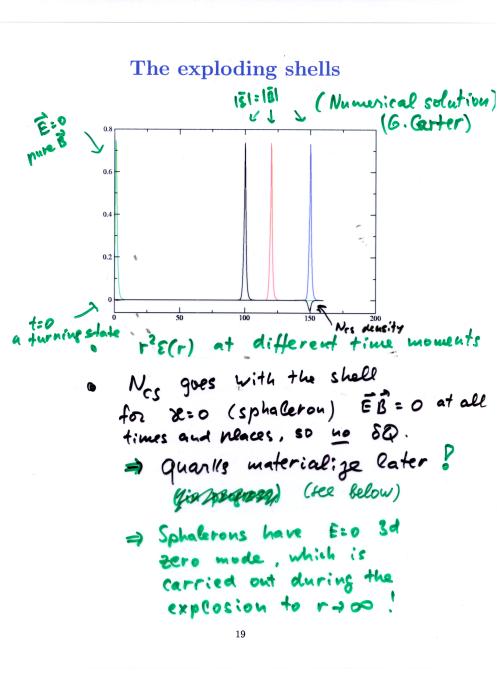 The exploding shells
|E⃗|=|B⃗|
(Numerical solution)
(G. Carter)
E⃗=0
pure B⃗
0.8
0.6
0.4
0.2
0
0 50 100 150 200
NCS density
t=0
a turning state
r²ε(r) at different time moments
• NCS goes with the shell
for ϰ=0 (sphaleron) E⃗B⃗=0 at all
times and places, so no δQ.
⇒ Quarks materialize later !
(see below)
⇒ Sphalerons have E=0 3d
zero mode, which is
carried out during the
explosion to r→∞ !
19